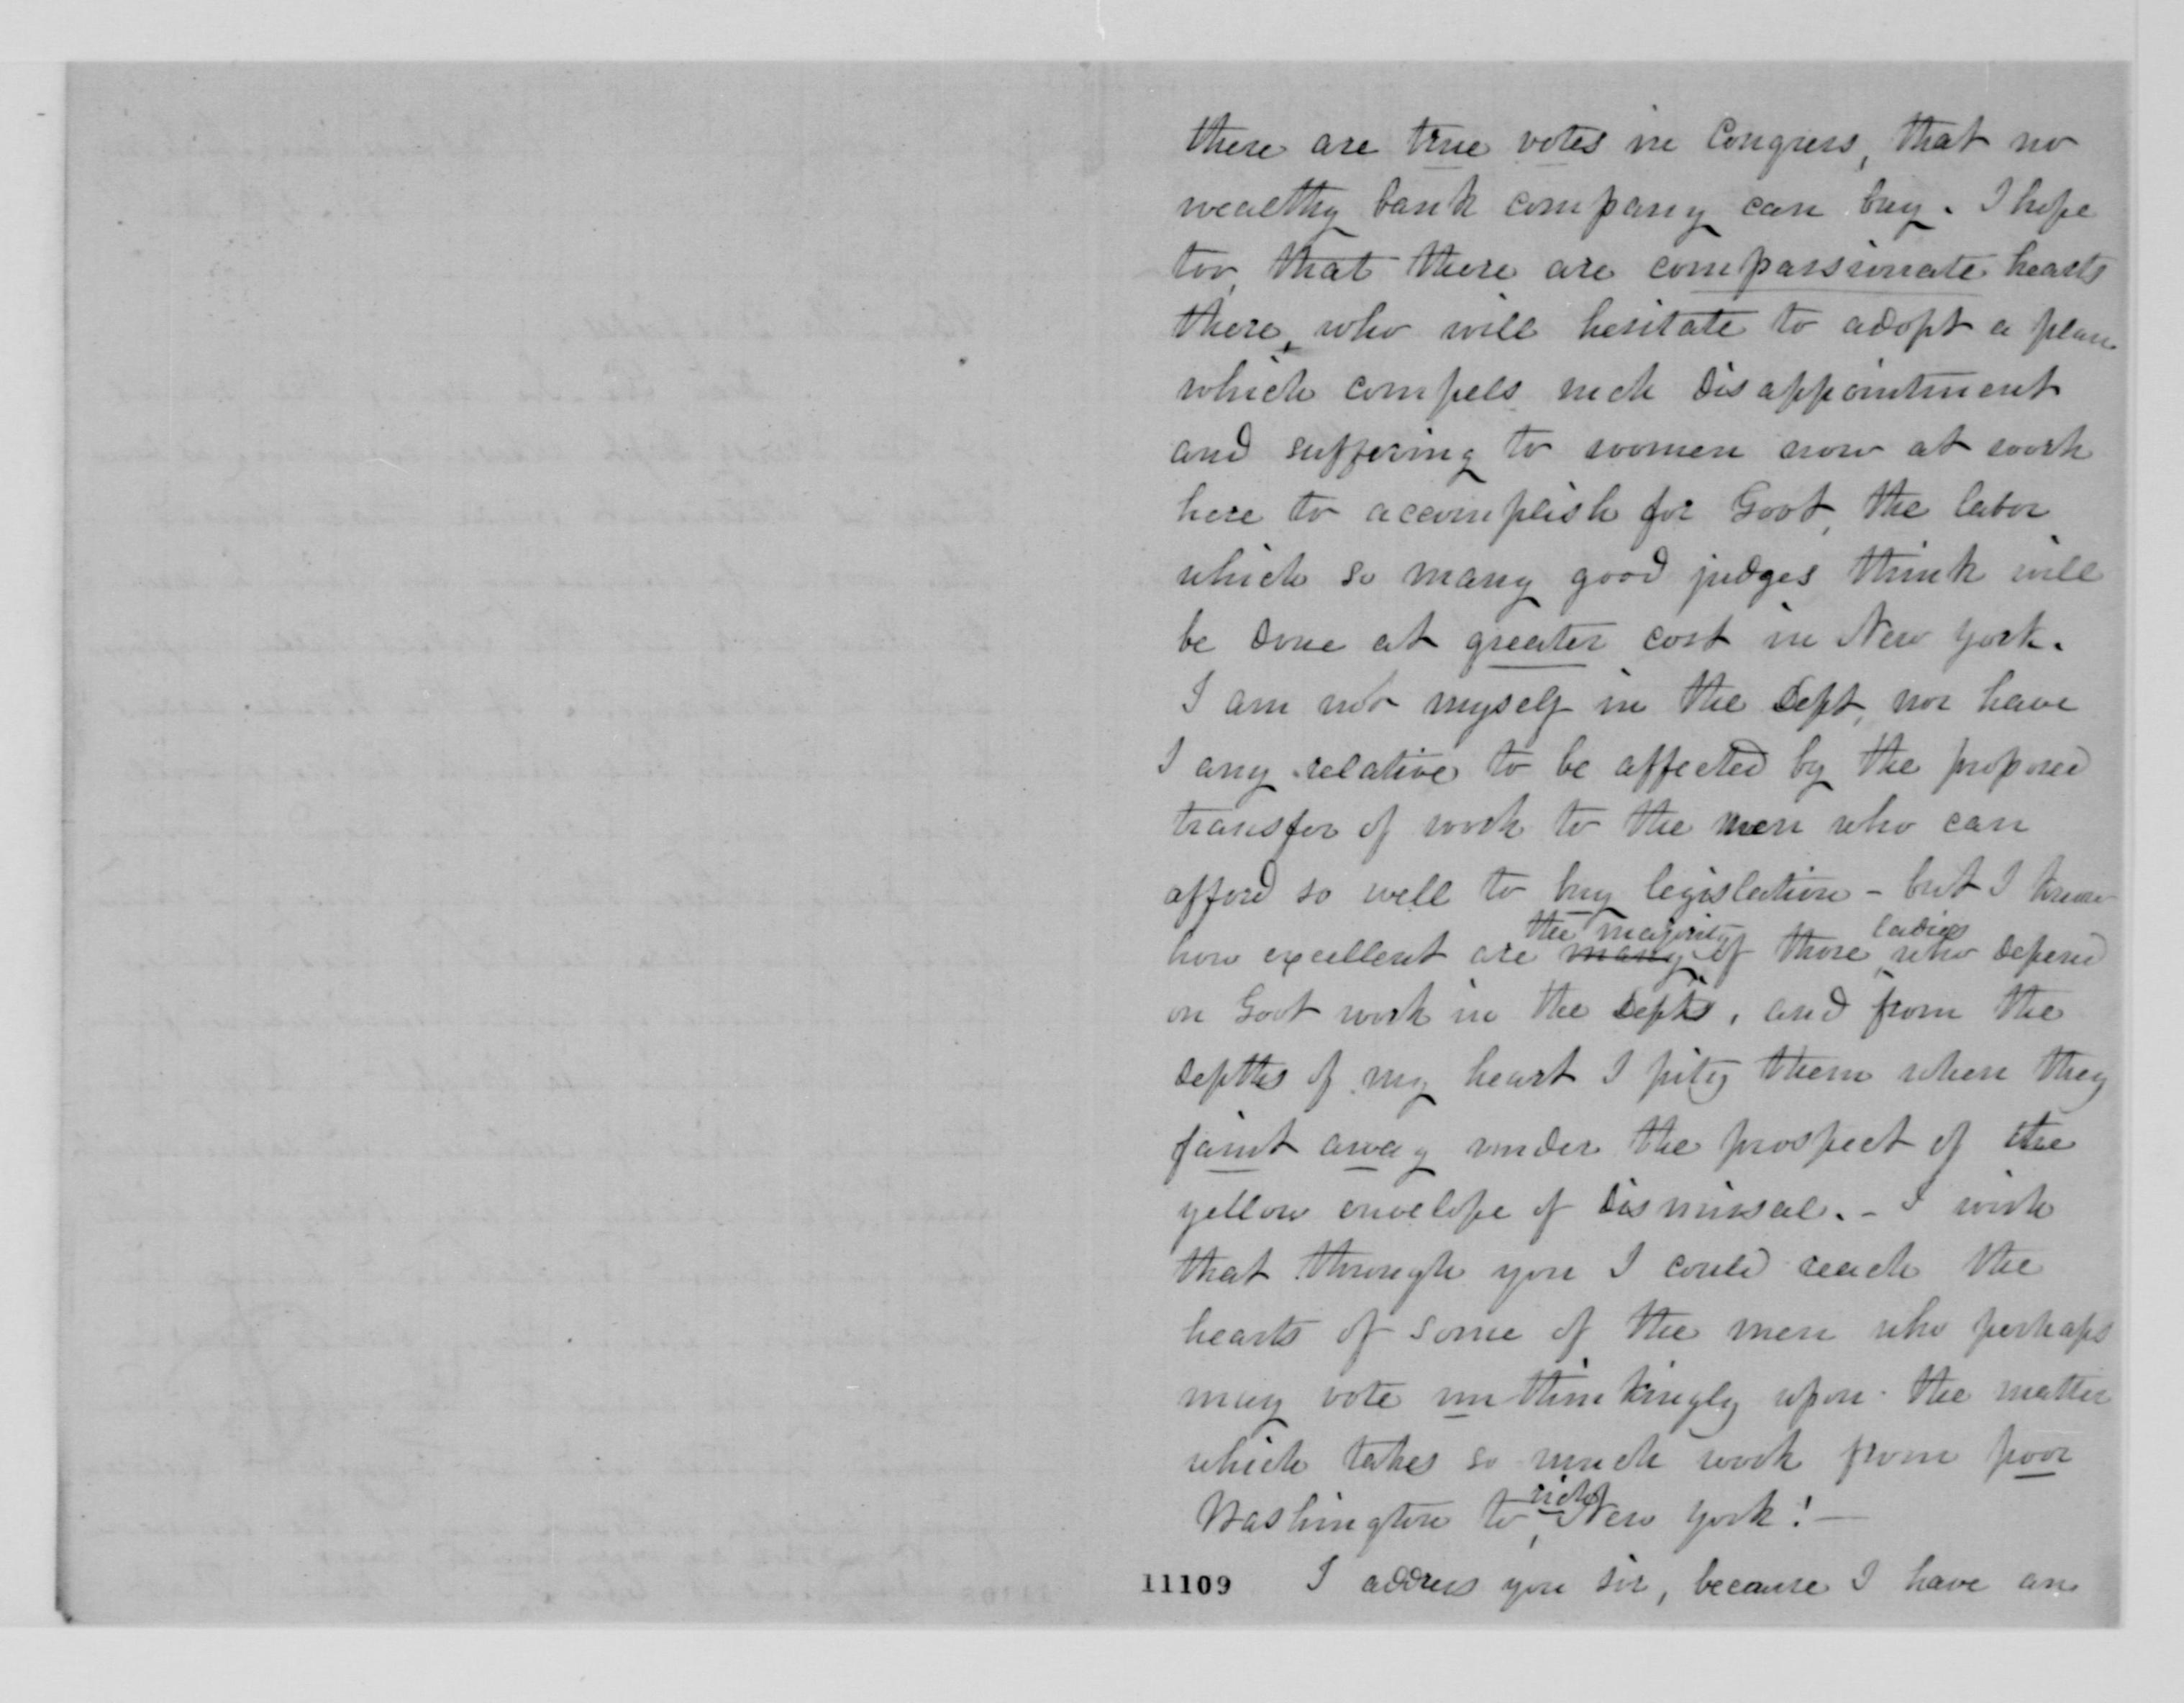 there are true votes in Congress, that no
wealthy bank company can buy. I hope
too, that there are compassionate hearts
there, who will hesitate to adopt a plan
which compels such disappointment
and suffering to women now at work
here to accomplish for Govt, the labor
which so many good judges think will
be done at greater cost in New York.
I am not myself in the Dept, nor have
I any relative to be affected by the proposed
transfer of work to the men who can
afford so well to buy legislation - but I know
the majority ladies
how excellent are many of those who depend
on Govt work in the Depts, and from the
depths of my heart I pity them when they
faint away under the prospect of the
yellow envelope of dismissal. - I wish
that through you I could reach the
hearts of some of the men who perhaps
may vote unthinkingly upon the matter
which takes so much work from poor
rich
Washington to New York! —
11109 I address you sir, because I have an